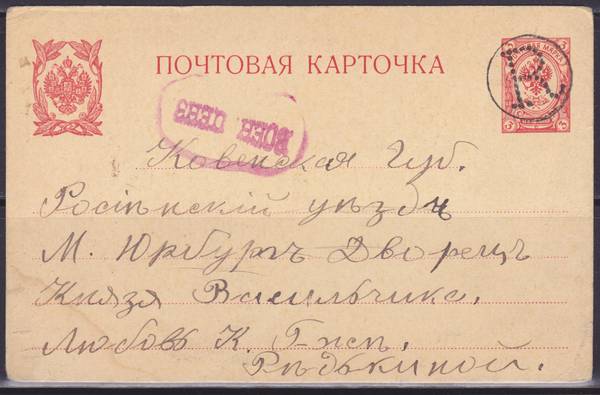 ПОЧТОВАЯ КАРТОЧКА
ВОЕН. ЦЕНЗ
Ковенская Губ.
Росіенскій уѣздъ
М. Юрбургъ Дворецъ
Князя Васильчика.
Любовь К. Г-жѣ
Рѣдькиной.